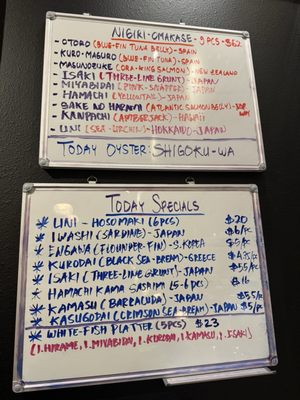 NIGIRI-OMAKASE - 9 PCS - $62
- OTORO (BLUE-FIN TUNA BELLY) - SPAIN
- KURO-MAGURO (BLUE-FIN TUNA) - SPAIN
- MASUNOZUKE (ORA-KING SALMON) - NEW ZEALAND
- ISAKI (THREE-LINE GRUNT) - JAPAN
- MIYABIDAI (PINK-SNAPPER) - JAPAN
- HAMACHI (YELLOWTAIL) - JAPAN
- SAKE NO HARAWA (ATLANTIC SALMON BELLY) -
- KANPACHI (AMBERJACK) - HAWAII
- UNI (SEA-URCHIN) - HOKKAIDO - JAPAN
TODAY OYSTER: SHIGOKU-WA
TODAY SPECIALS
* UNI - HOSOMAKI (6PCS) $20
* IWASHI (SARDINE) - JAPAN
* ENGAWA (FLOUNDER-FIN) - S.KOREA
* KURODAI (BLACK SEA-BREAM) - GREECE
* ISAKI (THREE-LINE GRUNT) - JAPAN
* HAMACHI KAMA SASHIMI (5-6 PCS) $16
* KAMASU (BARACUDA) - JAPAN
* KASUGODAI (CRIMSON SEA-BREAM) - JAPAN $5/PC
* WHITE-FISH PLATTER (5PCS) $23
(1.HIRAME, 1.MIYABIDAI, 1.KURODAI, 1.KAMASU, 1.ISAKI)